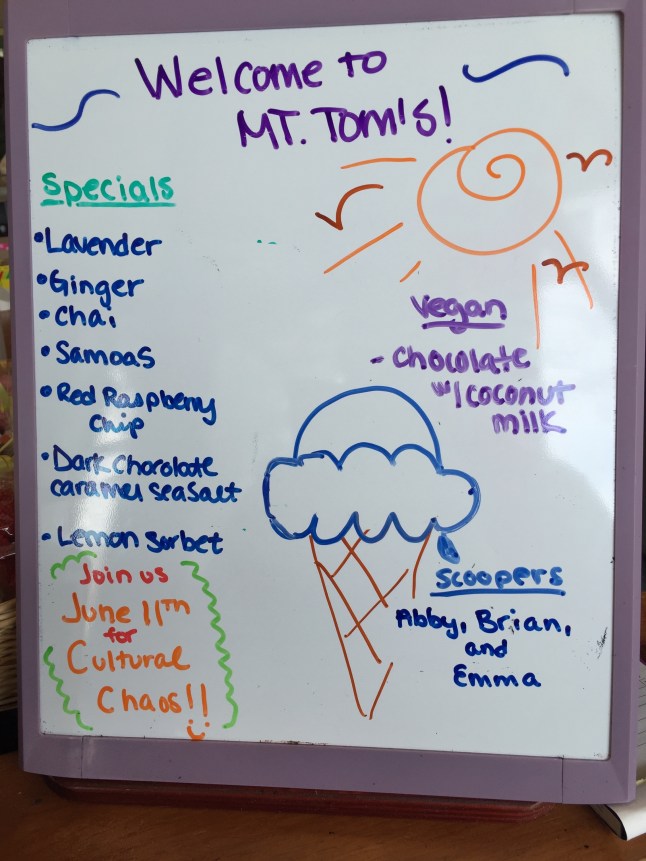 Welcome to
MT. Tom's!
Specials
•Lavender
•Ginger
•Chai
•Samoas
•Red Raspberry
Chip
•Dark Chocolate
caramel seasalt
•Lemon Sorbet
Join us
June 11th
for
Cultural
Chaos!!
Vegan
- Chocolate
w/coconut
milk
Scoopers
Abby, Brian,
and
Emma